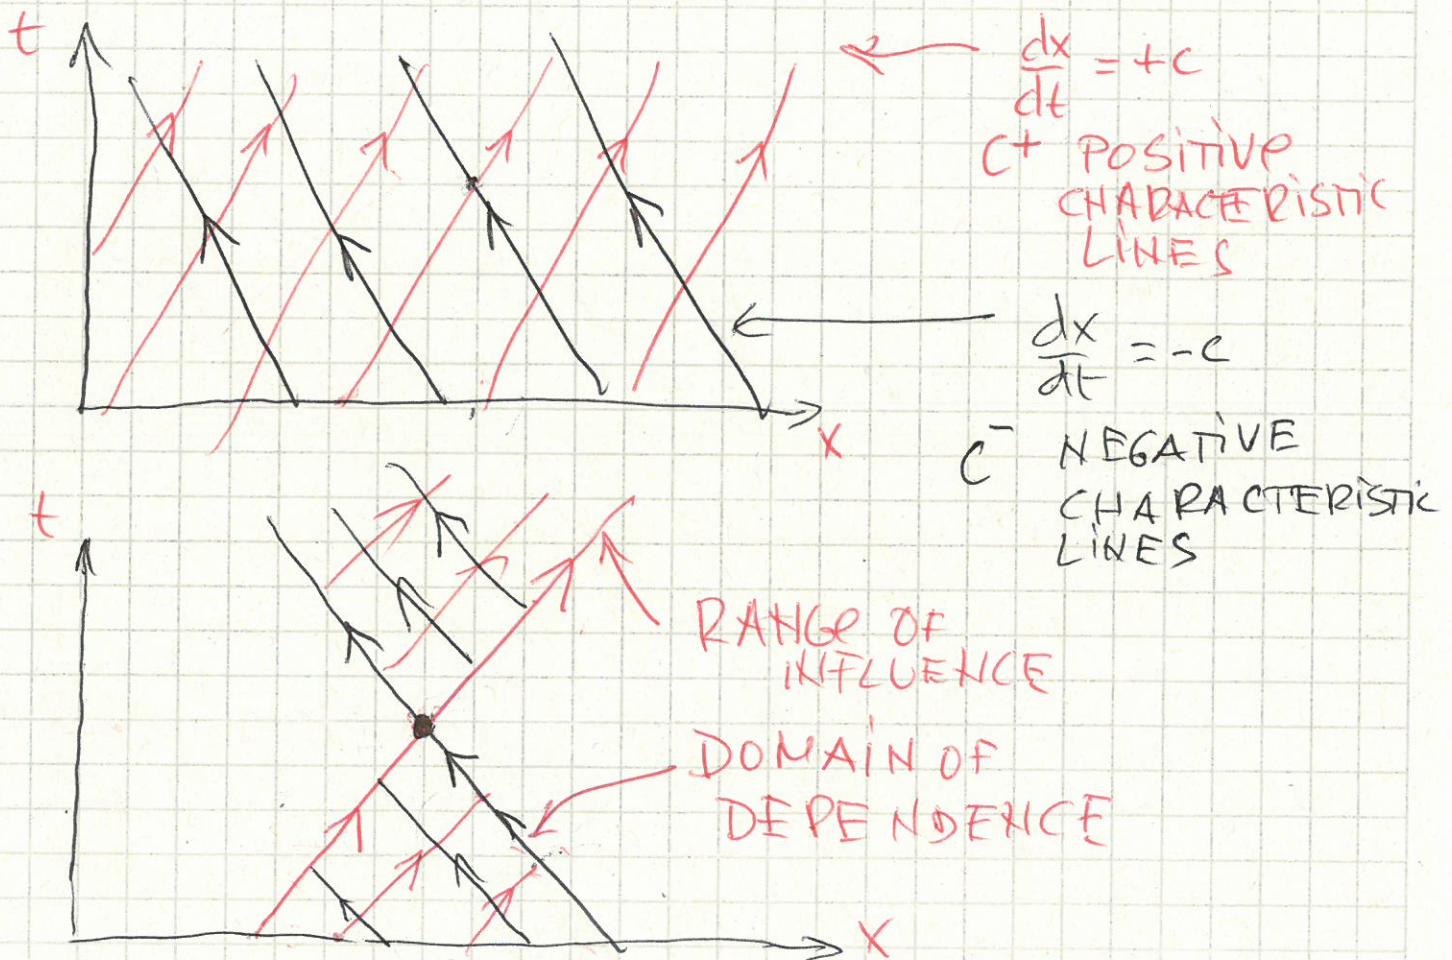 t
dx/dt = +c
C+ POSITIVE
CHARACTERISTIC
LINES
dx/dt = -c
x
C- NEGATIVE
CHARACTERISTIC
LINES
t
RANGE OF
INFLUENCE
DOMAIN OF
DEPENDENCE
x